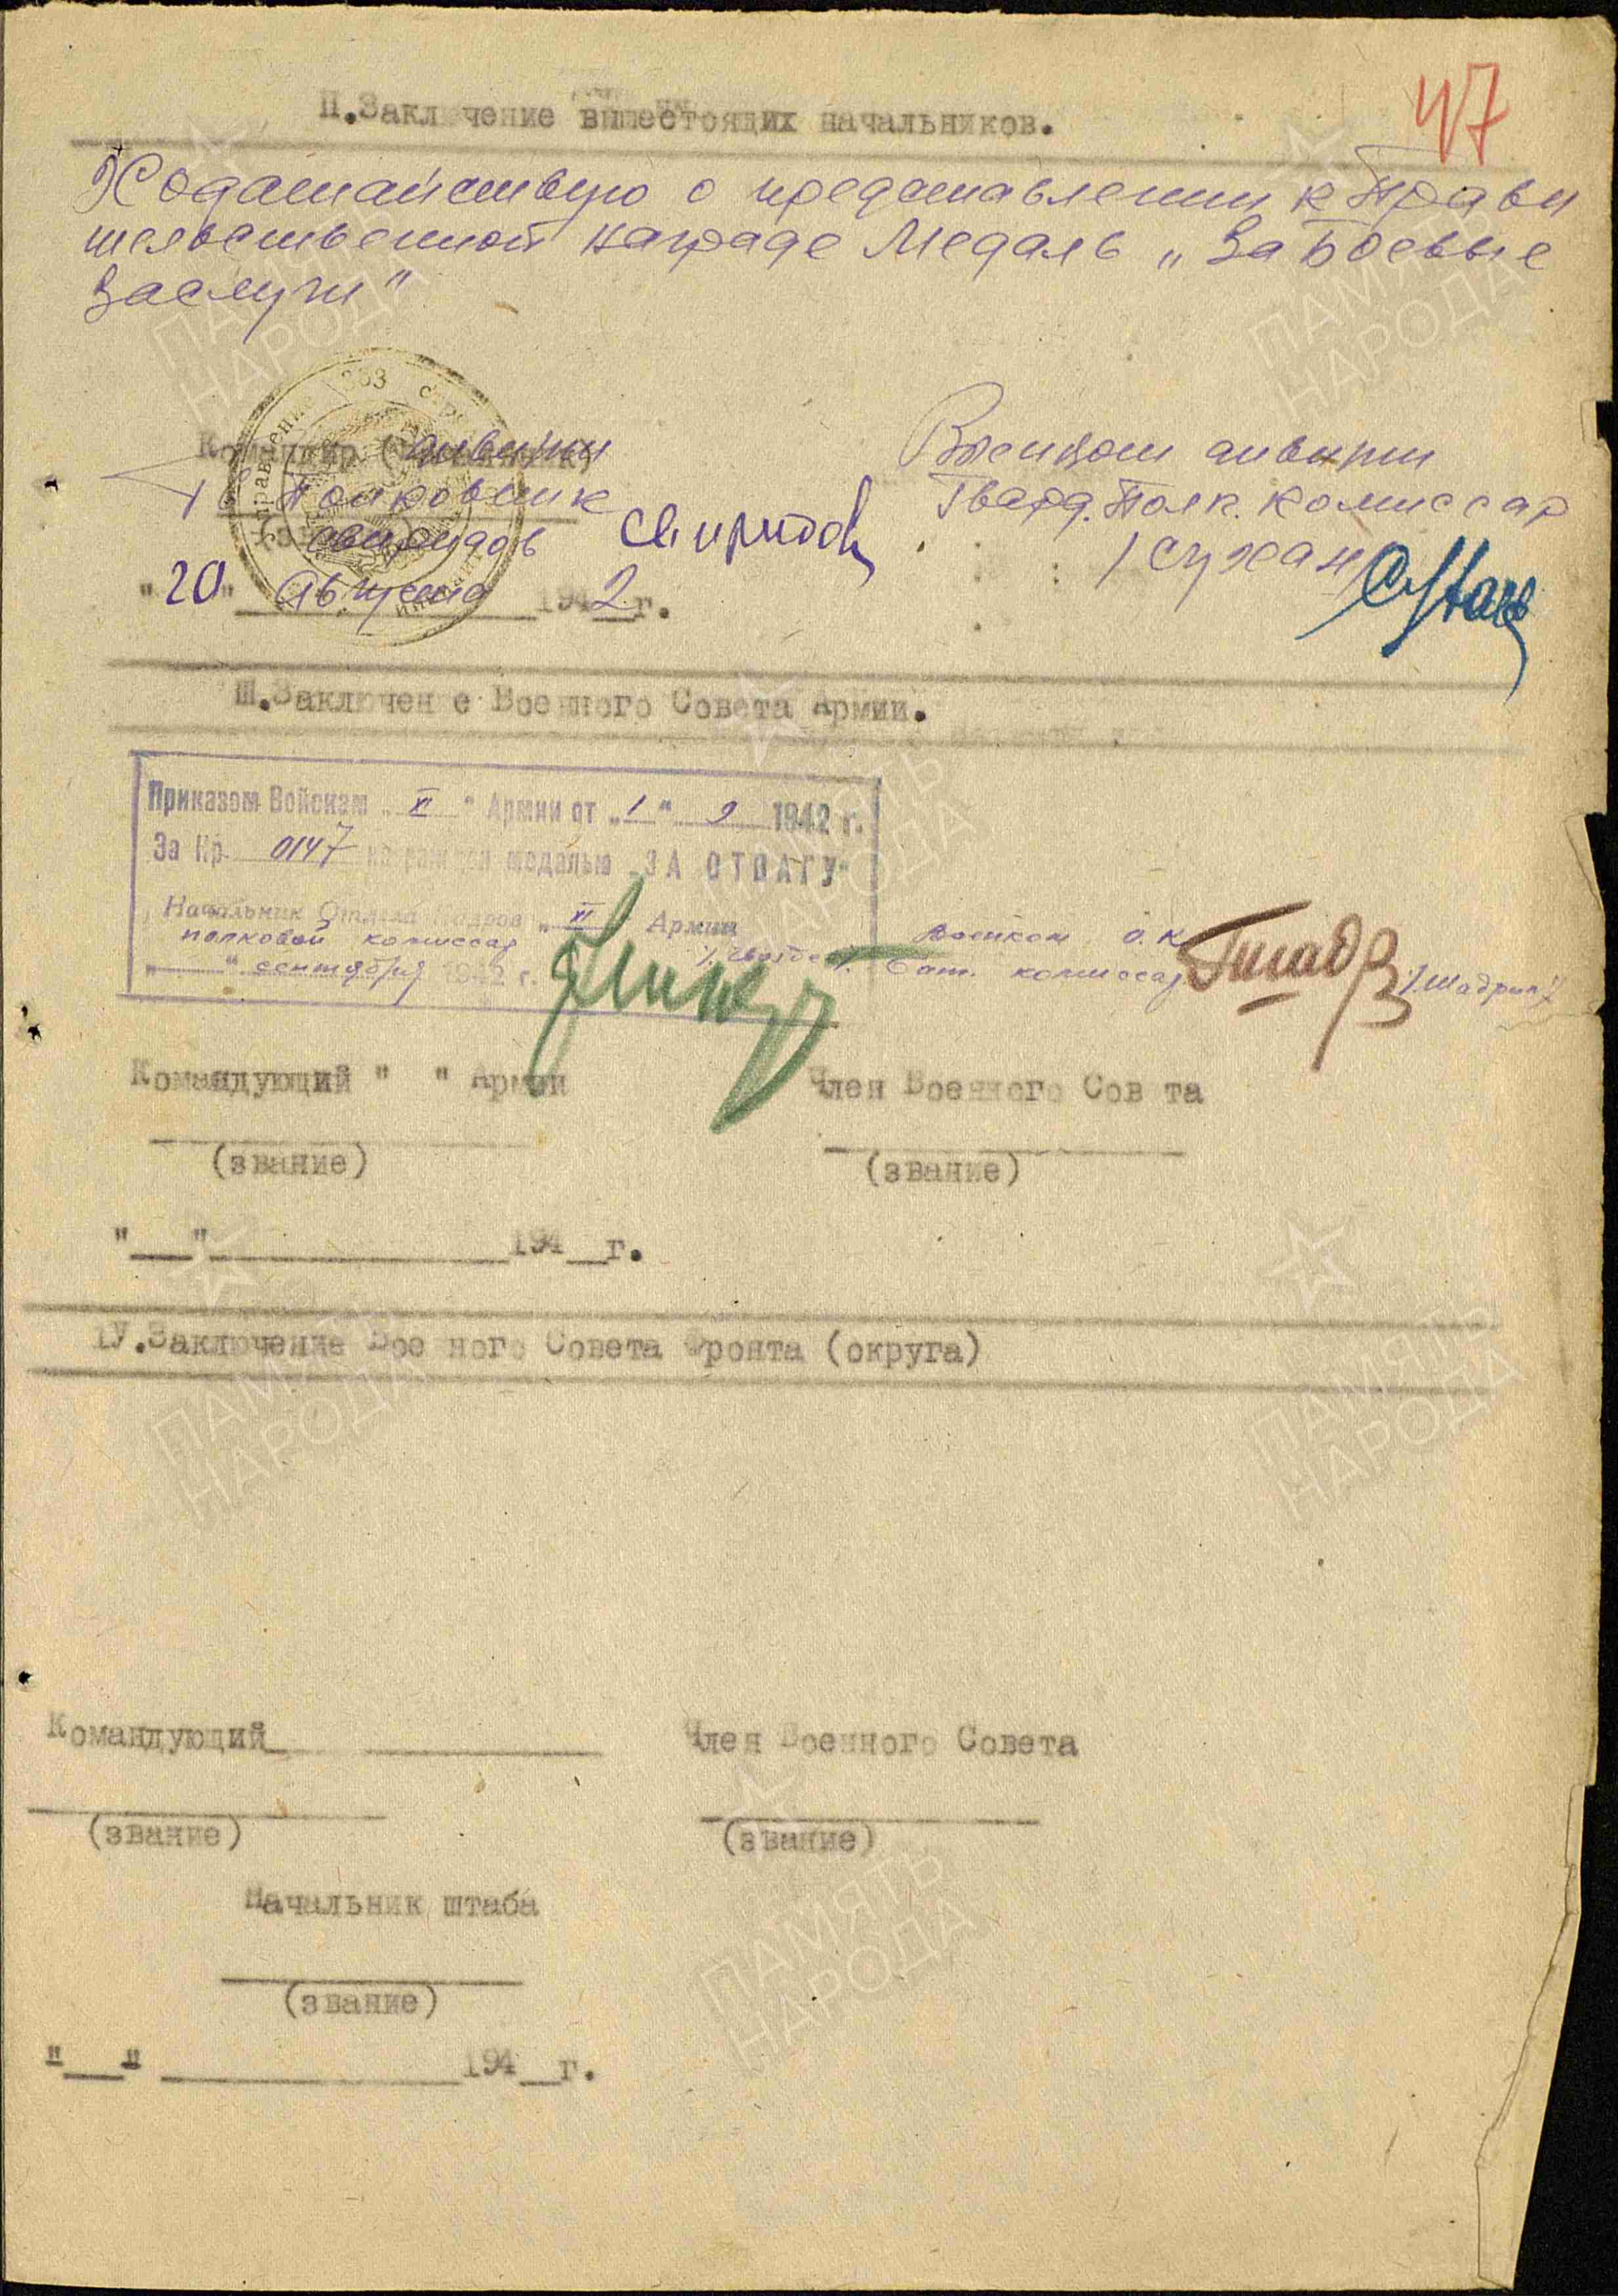 47
II.Заключение вышестоящих начальников.
Ходатайствую о представлении к Прави
тельственной награде Медаль „За Боевые
Заслуги"
Управление 363
Командир дивизии
Гв Полковник
Свиридов Свиридов
"20" Августа 1942 г.
Военком дивизии
Гвард. Полк. комиссар
/Сухан
III.Заключен е Военного Совета Армии.
Приказом Войскам „XI" Армии от „1" 9 1942 г.
За Нр. 0147 награжден медалью „ЗА ОТВАГУ"
Начальник Отдела Кадров „XI" Армии
полковой комиссар
„ " сентября 1942 г.
Военком О.К.
Бат. комиссар /Шадрин/
Командующий " " Армии
Член Военного Сов та
(звание)
(звание)
"__"__________194__г.
IУ.Заключение Вое ного Совета Фронта (округа)
Командующий__________
Член Военного Совета
(звание)
(звание)
Начальник штаба
(звание)
"__" __________194__г.
ПАМЯТЬ
НАРОДА
ПАМЯТЬ
НАРОДА
ПАМЯТЬ
НАРОДА
ПАМЯТЬ
НАРОДА
ПАМЯТЬ
НАРОДА
ПАМЯТЬ
НАРОДА